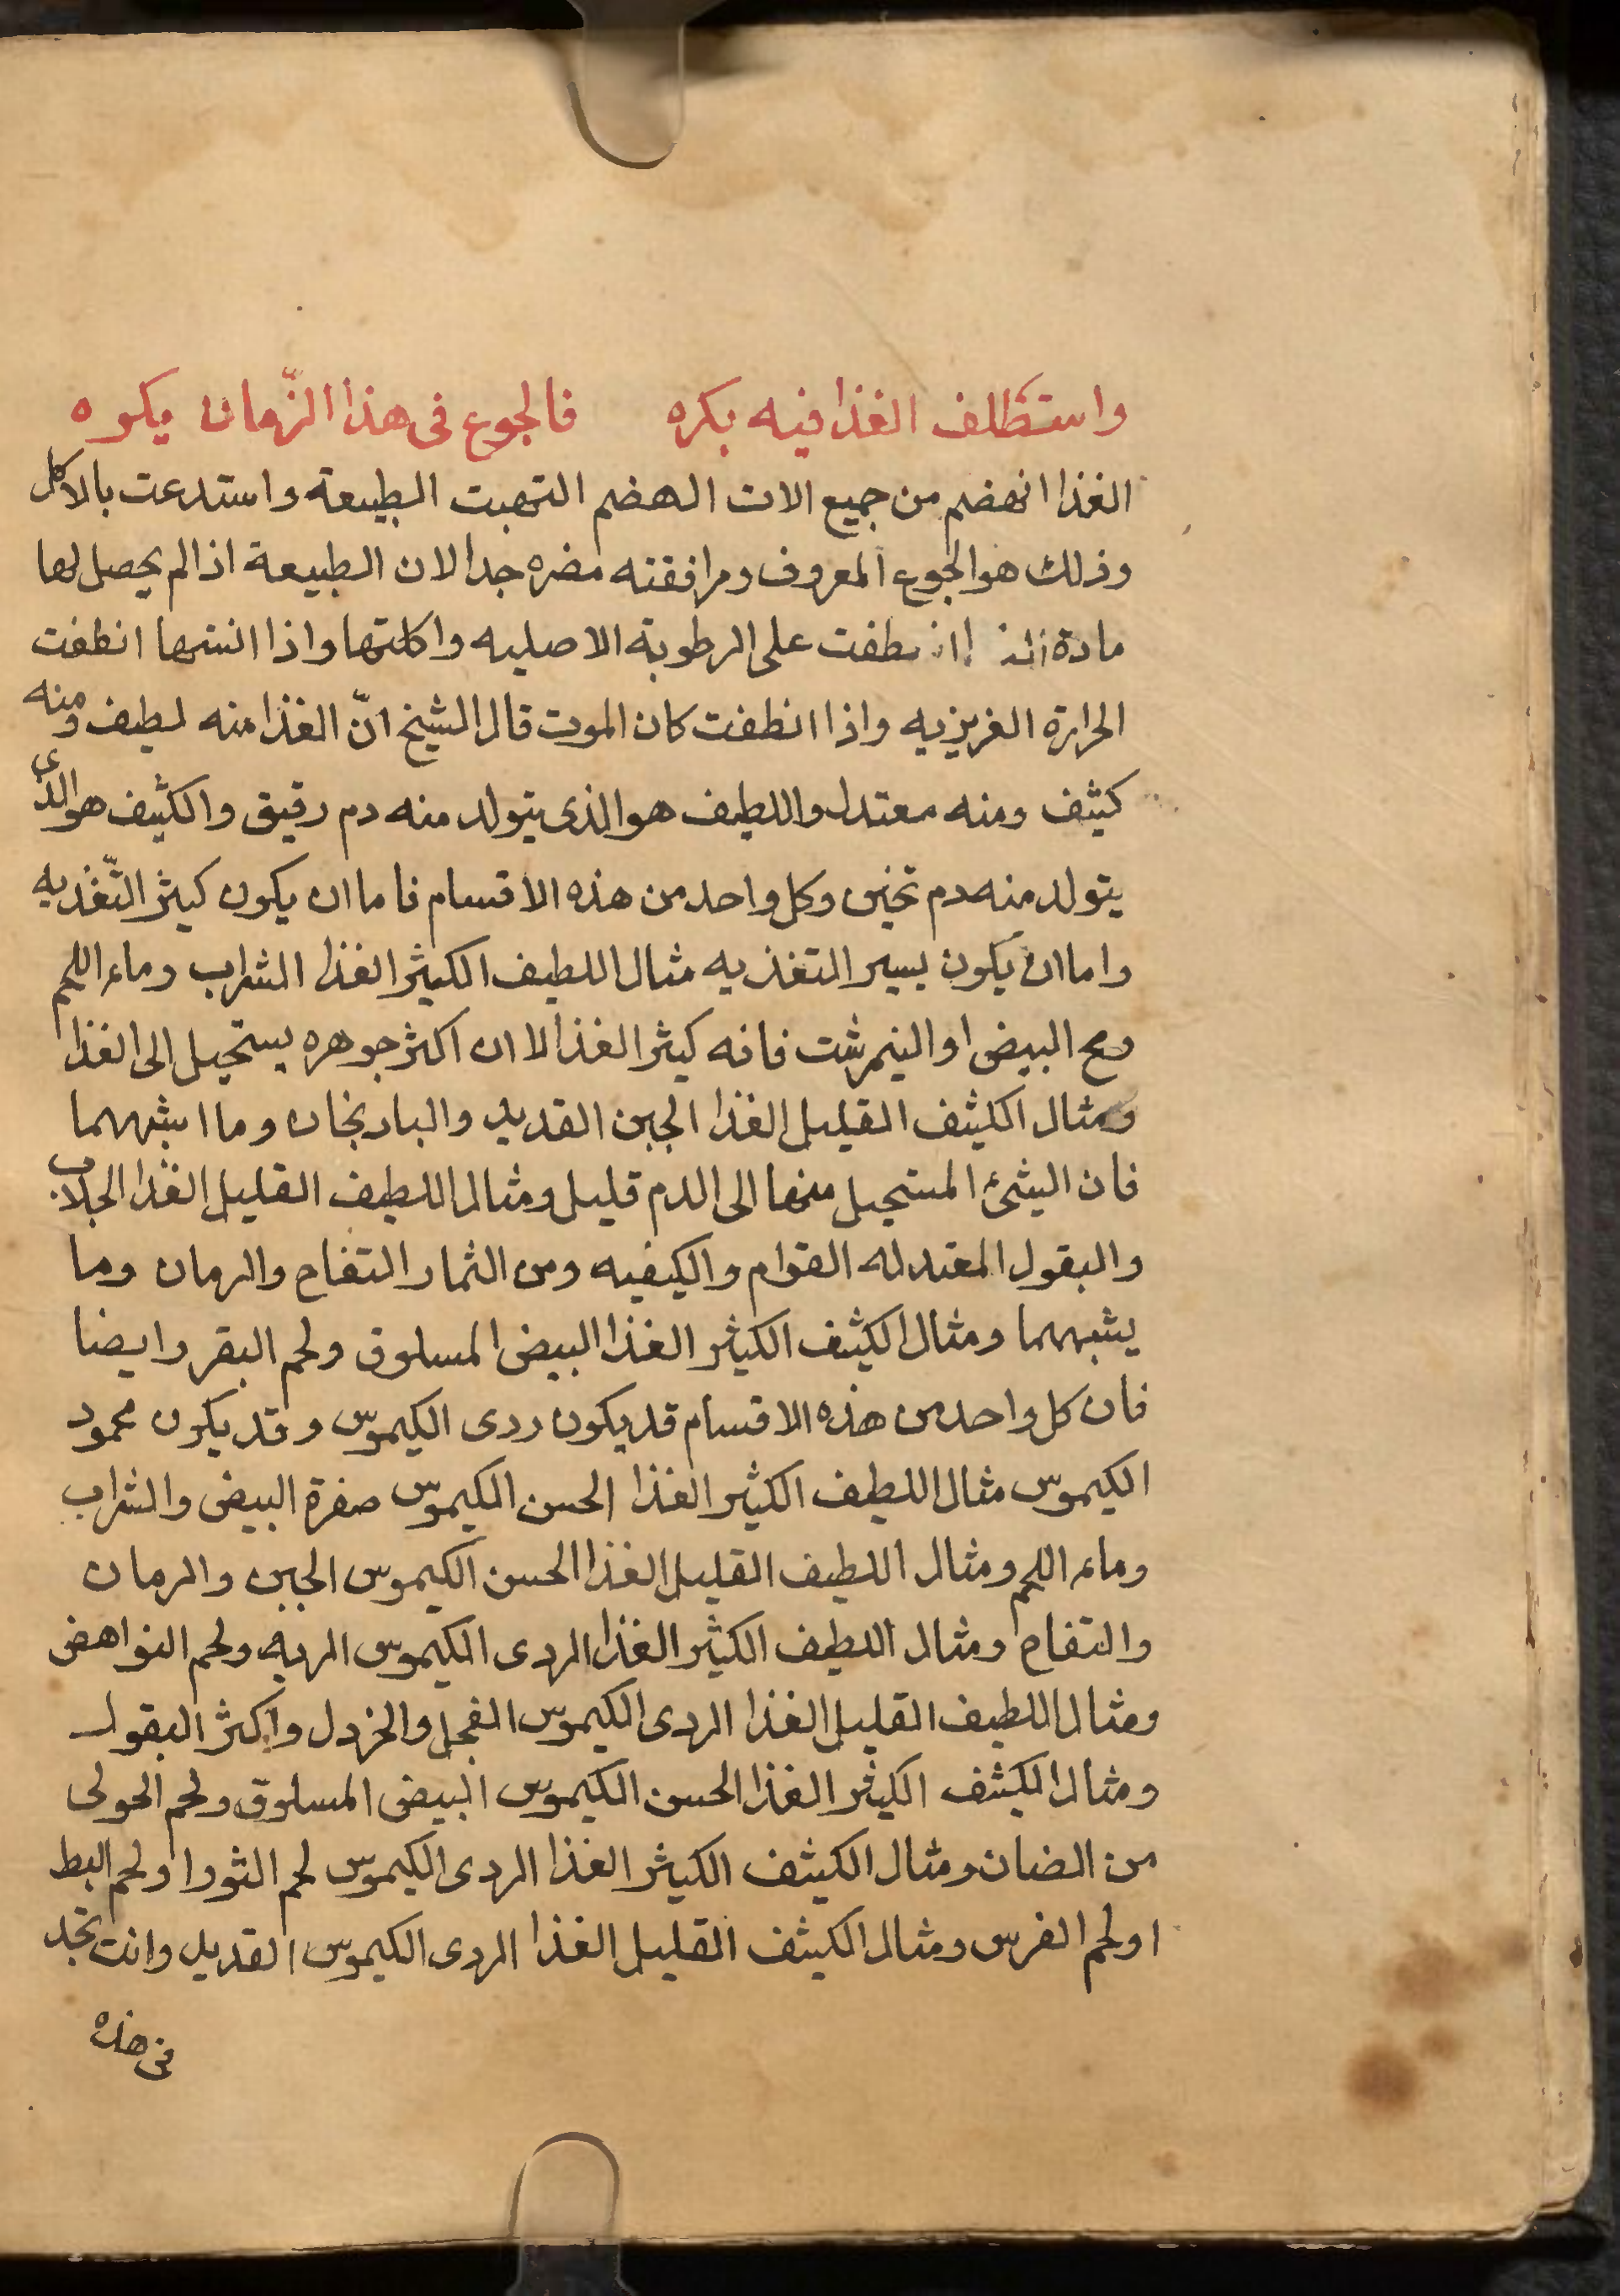 واستظلف الغذا فيه بكره فالجوع فى هذا الزّمان يكره
الغذا انهضم من جميع الات الهضم التهبت الطبيعة واستدعت بالاكل
وذلك هو الجوع المعروف ومرافقته مضره جدا لان الطبيعة اذا لم يحصل لها
مادة على الرطوبة الاصليه واكلتها واذا انطفت
الحرارة الغريزيه واذا انطفت كان الموت قال الشيخ انّ الغذا منه لطيف ومنه
كثيف ومنه معتدل واللطيف هو الذى يتولد منه دم رقيق والكثيف هو الذى
يتولد منه دم تخين وكل واحد من هذه الاقسام فاما ان يكون كيثر التّغذيه
واما ان يكون يسير التغذيه مثال اللطيف الكيثر الغذا الشراب وماء اللحم
ومح البيض او النيمرشت فانه كيثر الغذا لا ان اكثر جوهره يستحيل الى الغذا
ومثال الكثيف القليل الغذا الجبن القديد والبادنجان وما اشبههما
فان الشئ المستحيل منها الى الدم قليل ومثال اللطيف القليل الغذا الجلاب
والبقول المعتدله القوام والكيفيه ومن الثمار التفاح والرمان وما
يشبههما ومثال الكثيف الكيثر الغذا البيض المسلوق ولحم البقر وايضا
فان كل واحد من هذه الاقسام قد يكون ردى الكيموس وقد يكون محمود
الكيموس مثال اللطيف الكثير الغذا الحسن الكيموس صفرة البيض والشراب
وماء اللحم ومثال اللطيف القليل الغذا الحسن الكيموس الجبن والرمان
والتفاح ومثال اللطيف الكثير الغذا الردى الكيموس الريه ولحم النواهض
ومثال اللطيف القليل الغذا الردى الكيموس الفجل والخردل واكثر البقول
ومثال الكثيف الكيثر الغذا الحسن الكيموس البيض المسلوق ولحم الحولى
من الضان ومثال الكيثف الكيثر الغذا الردى الكيموس لحم الثور او لحم البط
او لحم الفرس ومثال الكيثف القليل الغذا الردى الكيموس القديد وانت تجد
فى هذه